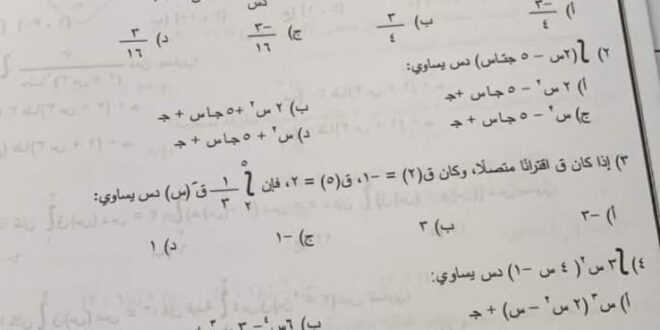 دس
أ) -٣/٤ ب) ٣/٤ ج) -٣/١٦ د) ٣/١٦
٢) ∫(٢س - ٥ جتاس) دس يساوي:
أ) ٢ س² - ٥ جاس + جـ ب) ٢ س² + ٥ جاس + جـ
ج) س² - ٥ جاس + جـ د) س² + ٥ جاس + جـ
٣) إذا كان ق اقترانًا متصلًا، وكان ق(٢) = -١، ق(٥) = ٢، فإن ∫₂⁵ ١/٣ قَ(س) دس يساوي:
أ) -٣ ب) ٣ ج) -١ د) ١
٤) ∫٣ س² (٤ س - ١) دس يساوي:
أ) س³ (٢ س² - س) + جـ ب)